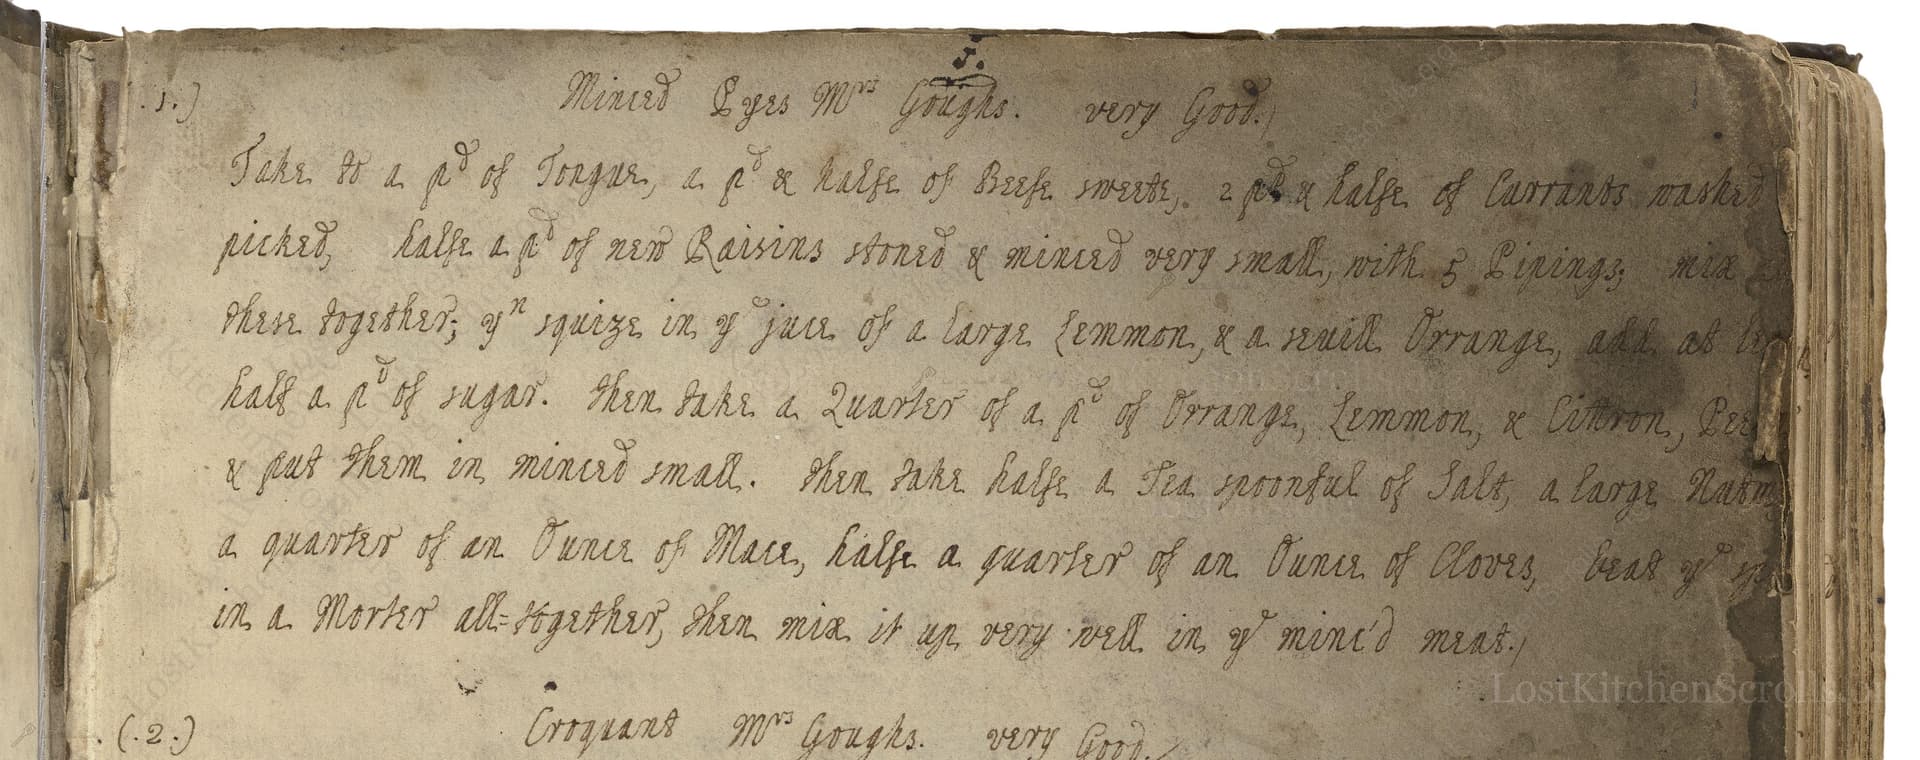 1.
.1.) Minced Pyes Mrs Goughs. very Good.
Take to a pd of Tongue, a pd & halfe of Beefe sweete, 2 pd & halfe of Currants washed
picked, halfe a pd of new Raisins stoned & minced very small, with 5 Pipings; mix
these together; yn squize in ye juce of a large Lemmon, & a sevill Orrange, add at
half a pd of sugar. then take a Quarter of a pd of Orrange, Lemmon, & Cittron,
& put them in minced small. then take halfe a Tea spoonful of Salt, a large
a quarter of an Ounce of Mace, halfe a quarter of an Ounce of Cloves, beat ye
in a Morter all=together, then mix it up very well in ye minc'd meat.
(.2.) Croquant Mrs Goughs. very Good.
LostKitchenScrolls